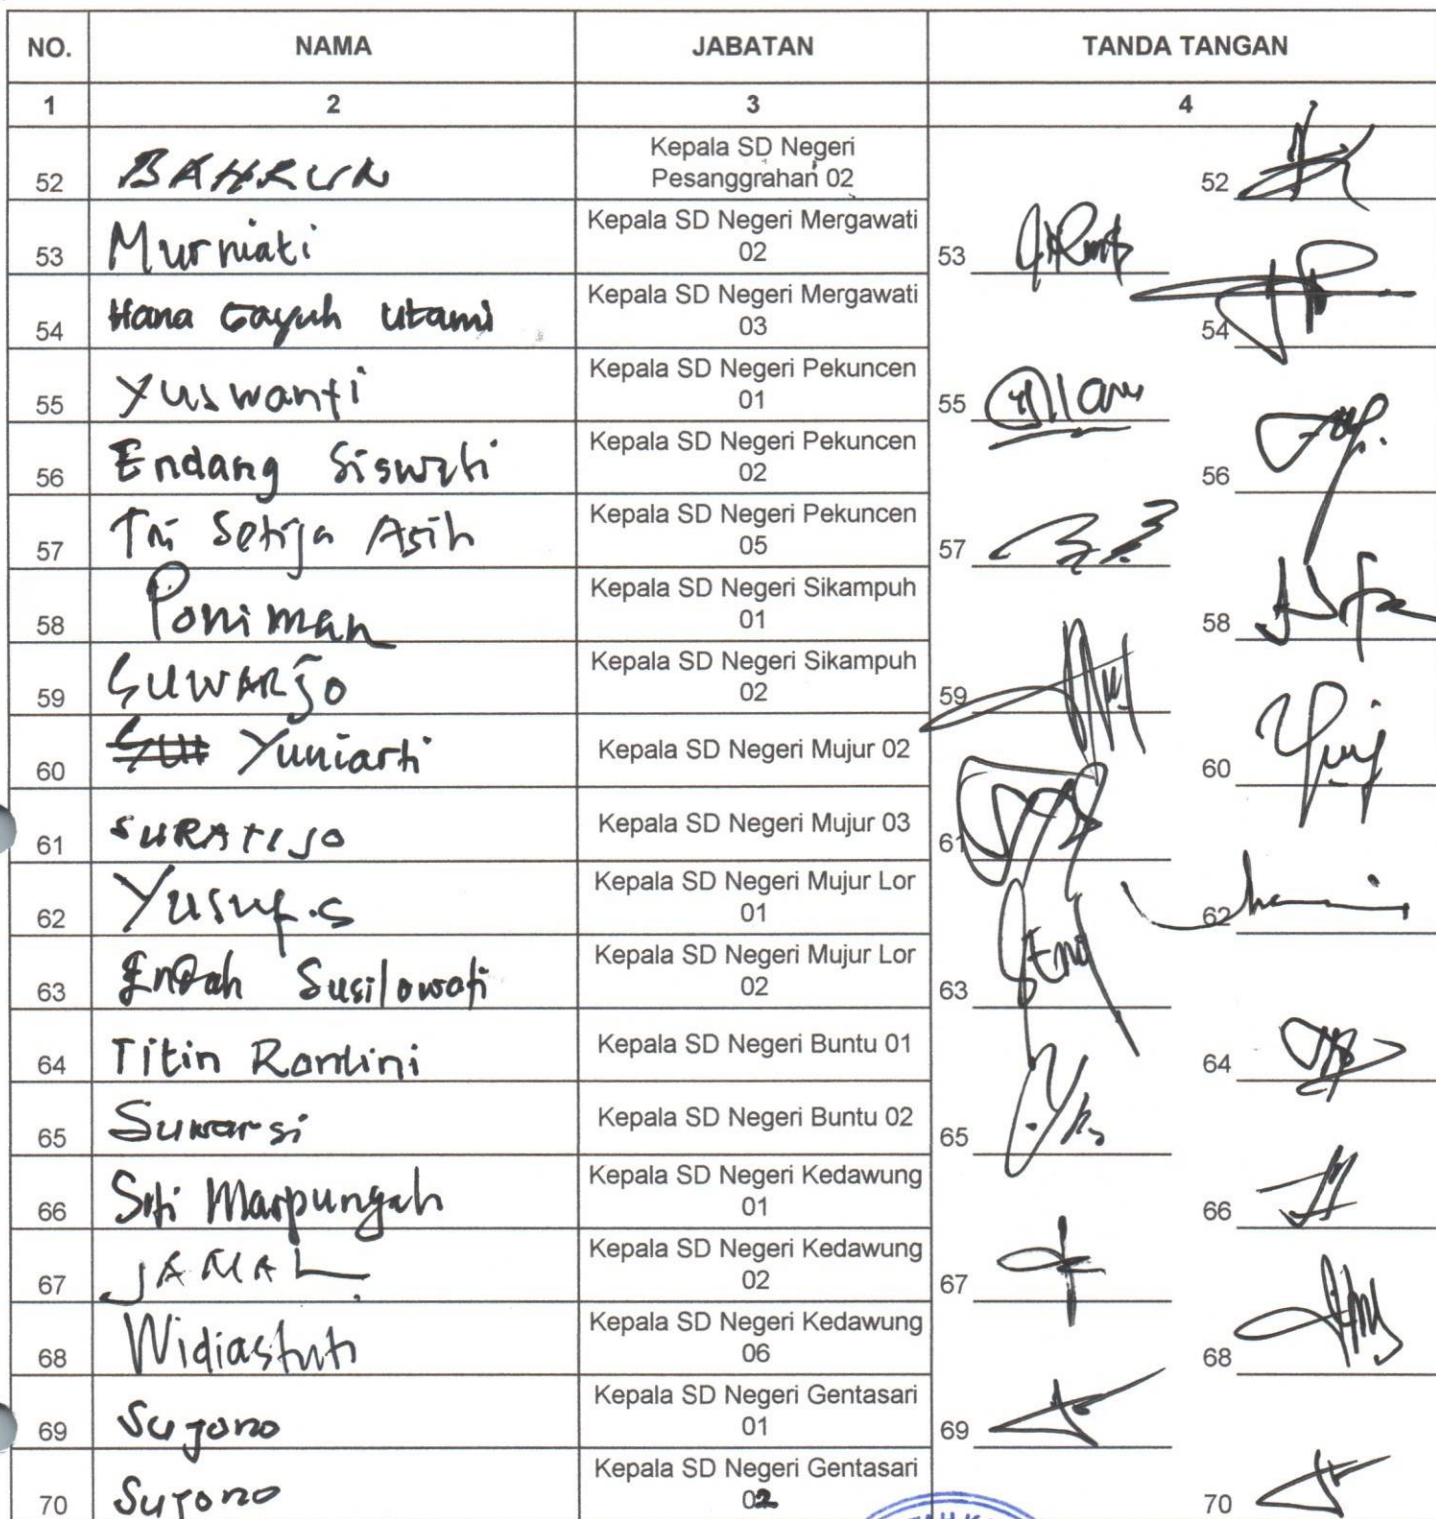 NO. NAMA JABATAN TANDA TANGAN
1 2 3 4
52 BAHRUN Kepala SD Negeri
Pesanggrahan 02 52
53 Murniati Kepala SD Negeri Mergawati
02 53
54 Hana Gayuh Utami Kepala SD Negeri Mergawati
03 54
55 Yuswanti Kepala SD Negeri Pekuncen
01 55
56 Endang Siswati Kepala SD Negeri Pekuncen
02 56
57 Tri Setija Asih Kepala SD Negeri Pekuncen
05 57
58 Poniman Kepala SD Negeri Sikampuh
01 58
59 SUWARJO Kepala SD Negeri Sikampuh
02 59
60 Yuniarti Kepala SD Negeri Mujur 02 60
61 SURATIJO Kepala SD Negeri Mujur 03 61
62 Yusuf.S Kepala SD Negeri Mujur Lor
01 62
63 Endah Susilowati Kepala SD Negeri Mujur Lor
02 63
64 Titin Kepala SD Negeri Buntu 01 64
65 Suwarsi Kepala SD Negeri Buntu 02 65
66 Siti Marpungah Kepala SD Negeri Kedawung
01 66
67 JAMAL Kepala SD Negeri Kedawung
02 67
68 Widiastuti Kepala SD Negeri Kedawung
06 68
69 Sujono Kepala SD Negeri Gentasari
01 69
70 Sujono Kepala SD Negeri Gentasari
02 70